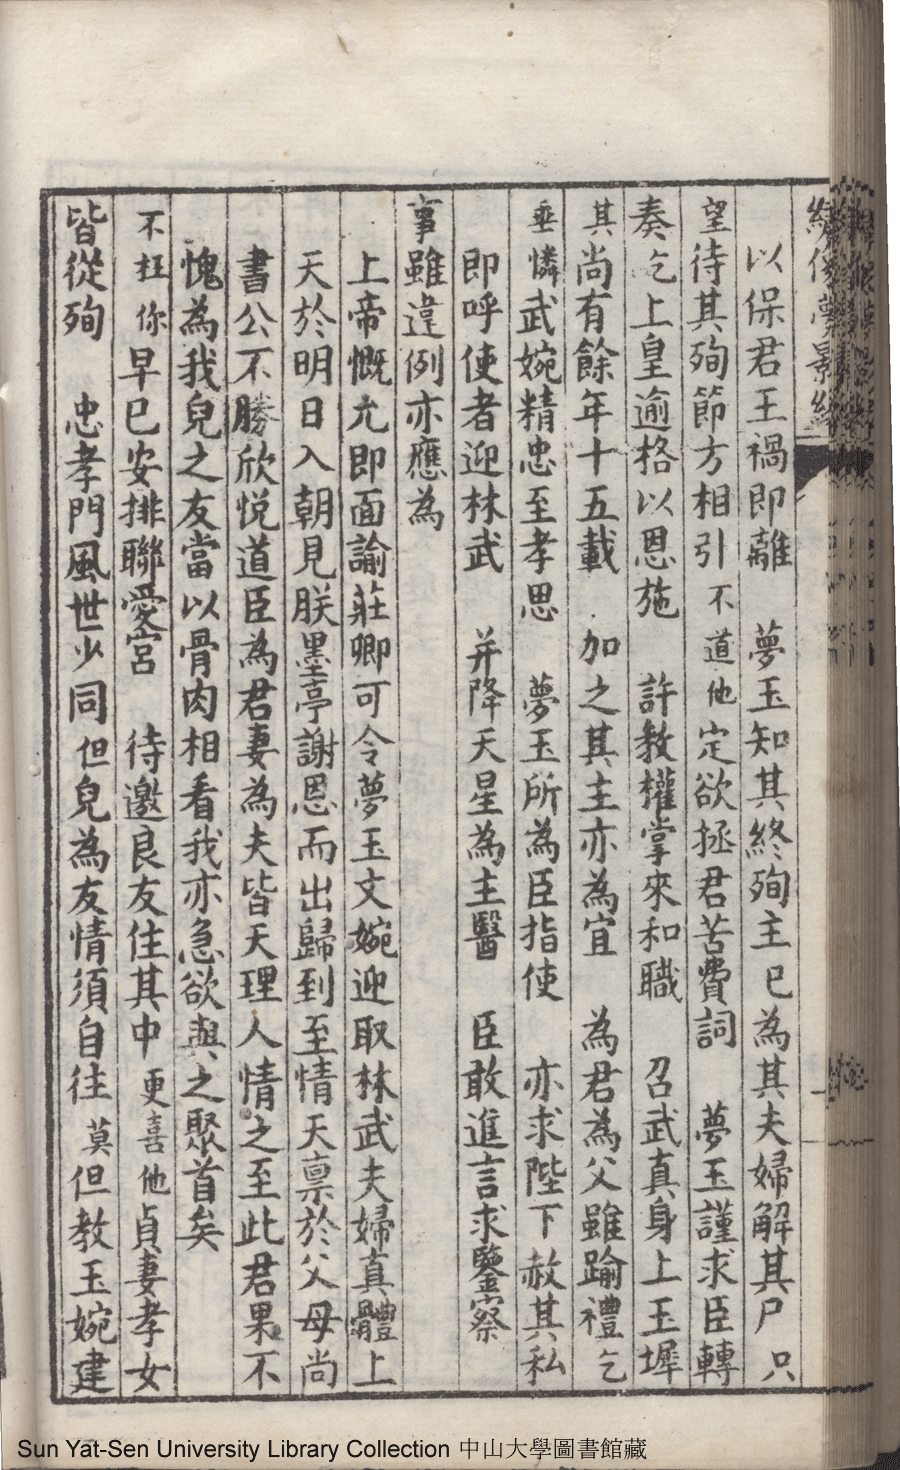 以保君王禍即離　夢玉知其終殉主已為其夫婦解其尸　只
望待其殉節方相引　不道他定欲拯君苦費詞　夢玉謹求臣轉
奏乞上皇逾格以恩施　許教權掌來和職　召武真身上玉墀
其尚有餘年十五載　加之其主亦為宜　為君為父雖踰禮乞
垂憐武婉精忠至孝思　夢玉所為臣指使　亦求陛下赦其私
即呼使者迎林武　并降天星為主醫　臣敢進言求鑒察
事雖違例亦應為
上帝慨允即面諭莊卿可令夢玉文婉迎取林武夫婦真體上
天於明日入朝見朕墨亭謝恩而出歸到至情天稟於父母尚
書公不勝欣悅道臣為君妻為夫皆天理人情之至此君果不
愧為我兒之友當以骨肉相看我亦急欲與之聚首矣
不枉你早已安排聯愛宮　待邀良友住其中　更喜他貞妻孝女
皆從殉　忠孝門風世少同　但兒為友情須自往　莫但教玉婉建
Sun Yat-Sen University Library Collection 中山大學圖書館藏